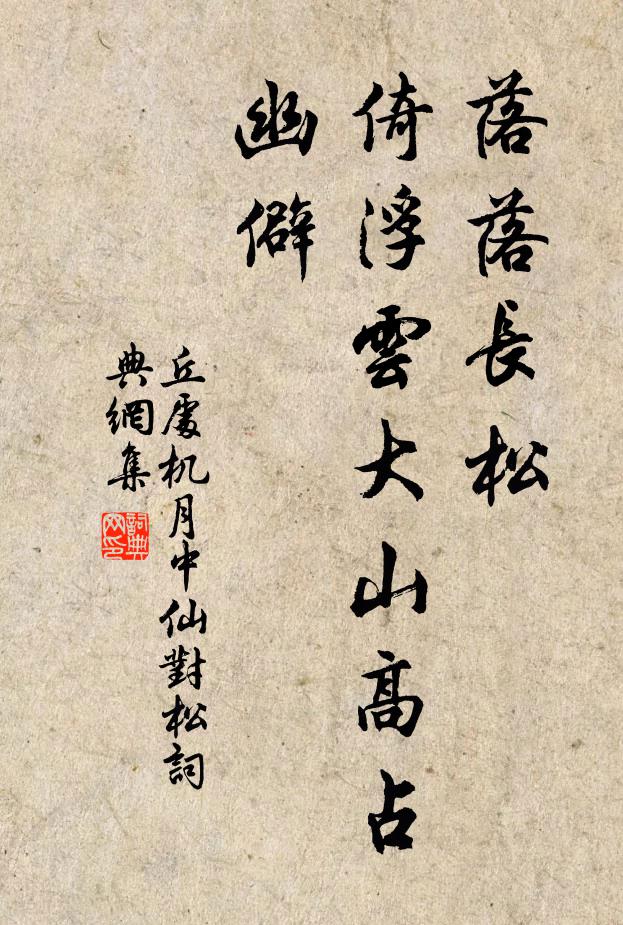 落落長松
倚浮雲大山高占
幽僻
丘處机月中仙對松詞
典網集
詞典
网印